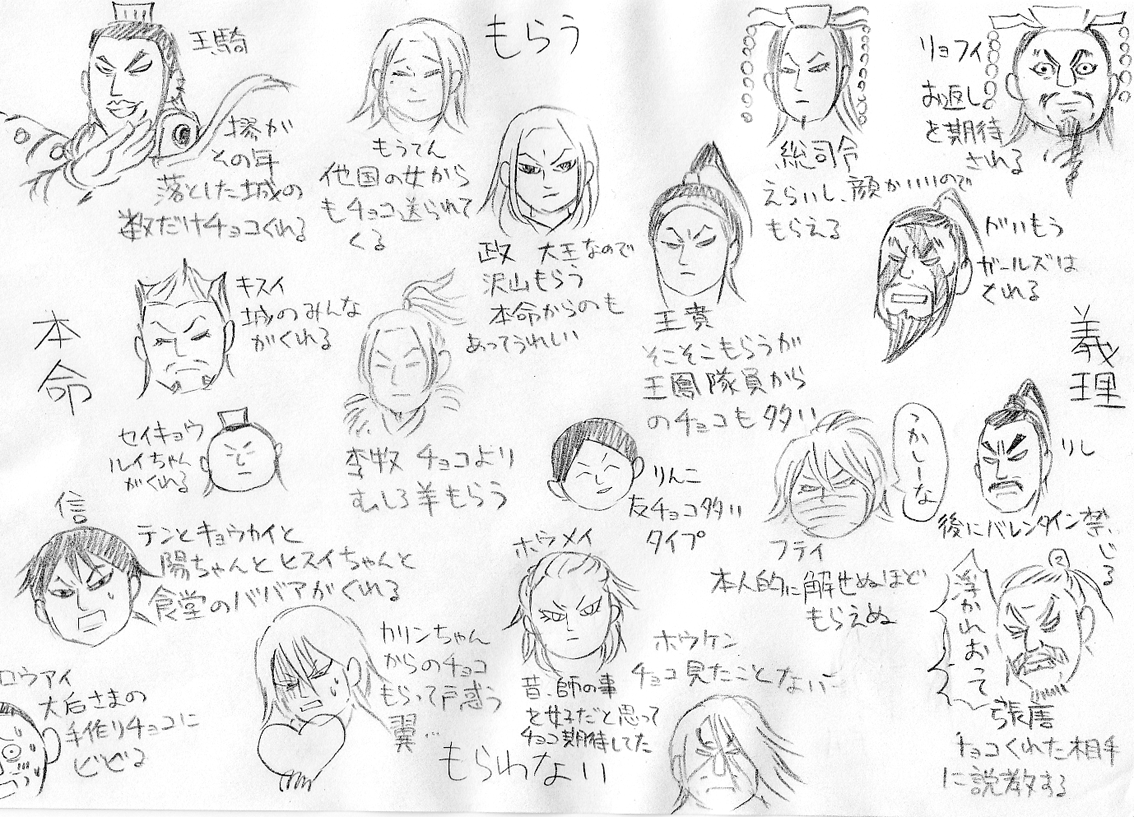 もらう
王騎
摎が
その年
落とした城の
数だけチョコくれる
もうてん
他国の女から
もチョコ送られて
くる
政 大王なので
沢山もらう
本命からのも
あってうれしい
総司令
えらいし、顔がいいので
もらえる
リョフイ
お返し
を期待
される
王賁
そこそこもらうが
王鳳隊員から
のチョコも多い
がいもう
ガールズは
くれる
本命
義理
キスイ
城のみんな
がくれる
李牧 チョコより
むしろ羊もらう
セイキョウ
ルイちゃん
がくれる
りんこ
友チョコ多い
タイプ
つかしーな
フテイ
本人的に解せぬほど
もらえぬ
りし
後にバレンタイン禁じる
信
テンとキョウカイと
陽ちゃんとヒスイちゃんと
食堂のババアがくれる
ホウメイ
昔、師の事
を女子だと思って
チョコ期待してた
ホウケン
チョコ見たことない
浮かれおって
張唐
チョコくれた相手
に説教する
ロウアイ
大后さまの
手作りチョコに
ビビる
カリンちゃん
からのチョコ
もらって戸惑う
翼…
もらわない